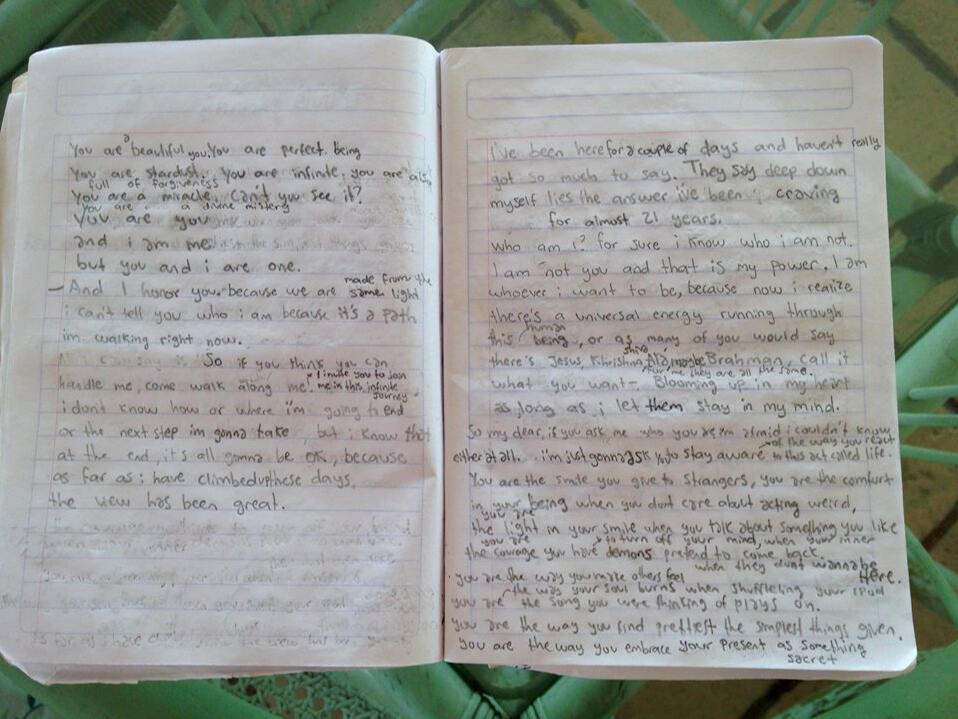 a
You are beautiful you. You are perfect. being
You are stardust. You are infinite. you are also
full of forgiveness
You are a miracle. Can't you see it?
You are a divine mistery
You are you
and i am me
but you and i are one.
made from the
- And I honor you. because we are same light
i can't tell you who i am because it's a path
im walking right now.
So if you think you can
I invite you to join
handle me, come walk along me! me in this infinite
journey.
i dont know how or where i'm going to end
or the next step im gonna take, but i know that
at the end, it's all gonna be ok, because
as far as i have climbedupthese days,
the view has been great.
i've been here for a couple of days and haven't really
got so much to say. They say deep down
myself lies the answer i've been craving
for almost 21 years.
who am i? for sure i know who i am not.
I am not you and that is my power. I am
whoever i want to be, because now i realize
there's a universal energy running through
human
this being, or as many of you would say
shiva
there's Jesus, Khrishna, Ala, maybe Brahman, call it
for me they are all the same.
what you want - Blooming up in my heart
as long as i let them stay in my mind.
So my dear, if you ask me who you are im afraid i couldn't know
of the way you react
either at all. i'm just gonna ask you to stay aware to this act called life.
You are the smile you give to strangers, you are the comfort
in your being when you dont care about acting weird,
you are
the light in your smile when you talk about something you like
you are to turn off your mind, when your inner
the courage you have demons pretend to come back
when they dont wannabe
you are the way you make others feel Here.
the way your soul burns when shuffleling your ipod
you are the song you were thinking of plays on.
you are the way you find prettiest the simplest things given.
you are the way you embrace your present as something
sacret